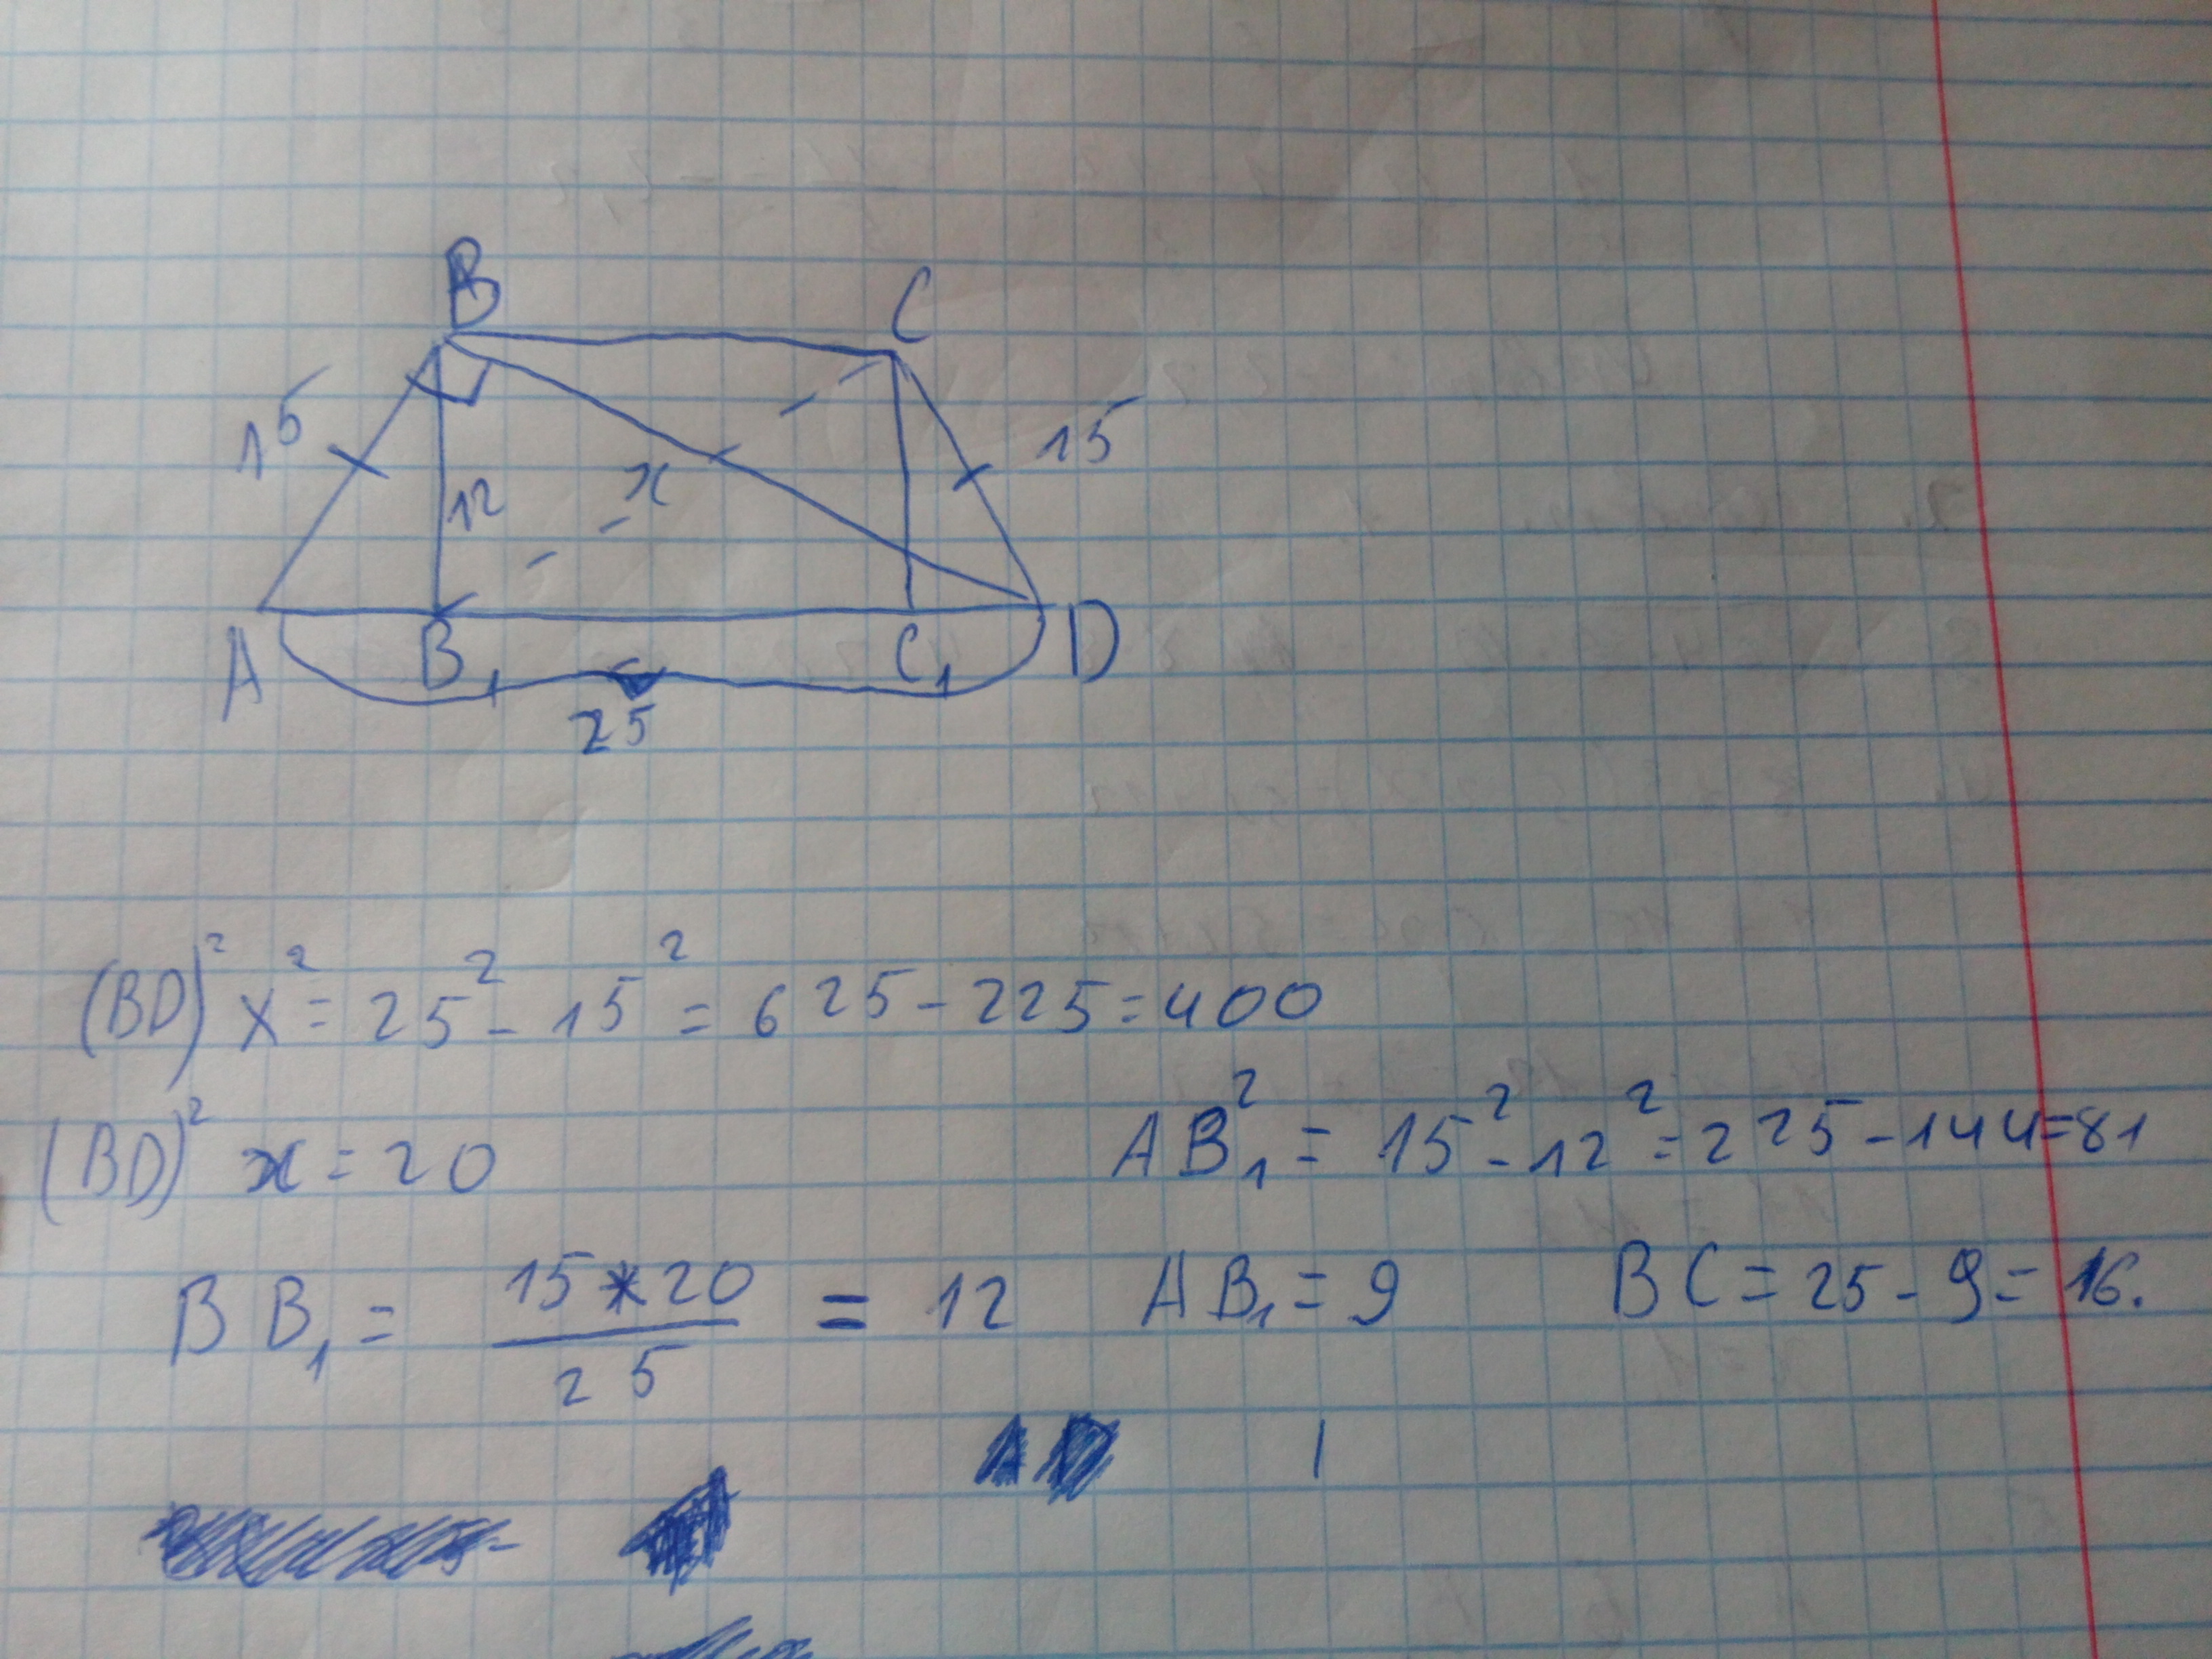 B C
15 15
12 x
A B₁ C₁ D
25
(BD)² x² = 25² - 15² = 625 - 225 = 400
(BD)² x = 20
AB₁² = 15² - 12² = 225 - 144 = 81
BB₁ = 15 * 20 / 25 = 12 AB₁ = 9 BC = 25 - 9 = 16.